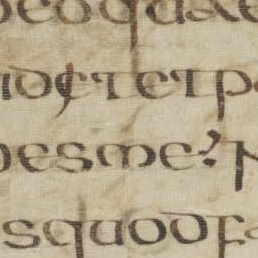 deoquae
idetetp
pesme? N
squodfa